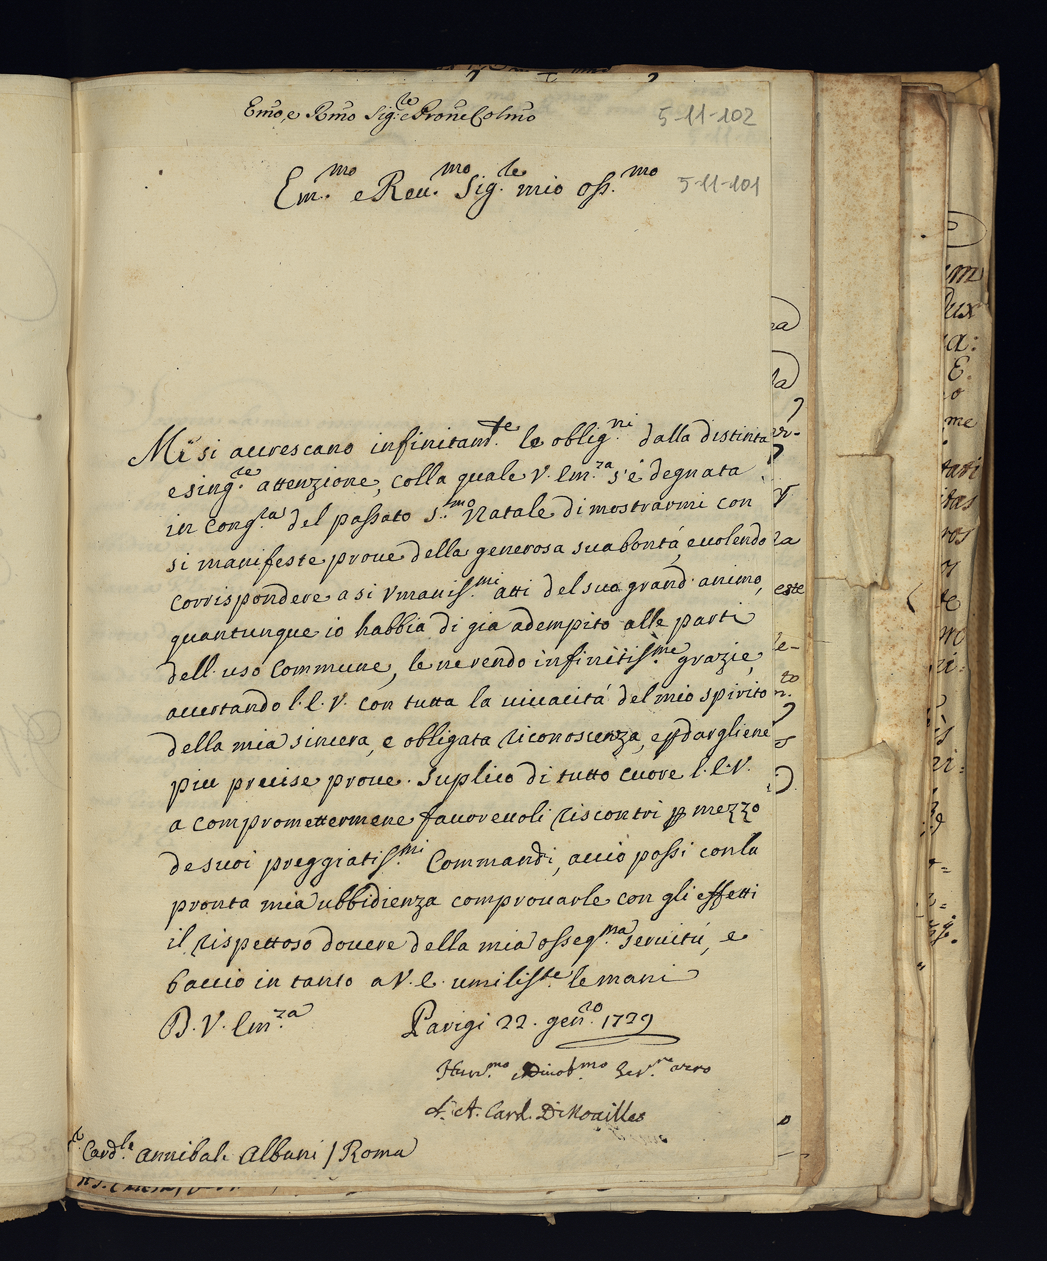 Emo, e Rmo Sig.re Prone Colmo
5-11-102
Em.mo e Reu.mo Sig.re mio oss.mo
5-11-101
Mi si accrescano infinitam.te le oblig.ni dalla distinta
e sing.re attenzione, colla quale V. Em.za s'è degnata
in cong.ra del passato s.mo Natale di mostrarmi con
si manifeste proue della generosa sua bontá, e uolendo
corrispondere a si vmaniss.mi atti del suo grand' animo,
quantunque io habbia di gia adempito alle parti
dell' uso commune, le ne rendo infinitiss.me grazie,
accertando l' E. V. con tutta la uiuacitá del mio spirito
della mia sincera, e obligata riconoscenza, e p dargliene
piu precise proue. Suplico di tutto cuore l' E. V.
a compromettermene fauoreuoli riscontri p mezzo
de suoi preggiatiss.mi Commandi, acciò possi con la
pronta mia ubbidienza comprouarle con gli effetti
il rispettoso douere della mia osseq.ma seruitú, e
baccio in tanto a V. E. umiliss.te le mani
D. V. Em.za
Parigi 22. gen.ro 1729
Hum.mo e Diuot.mo Ser.re vero
L. A. Card. Di Noailles
Card.le Annibale Albani / Roma